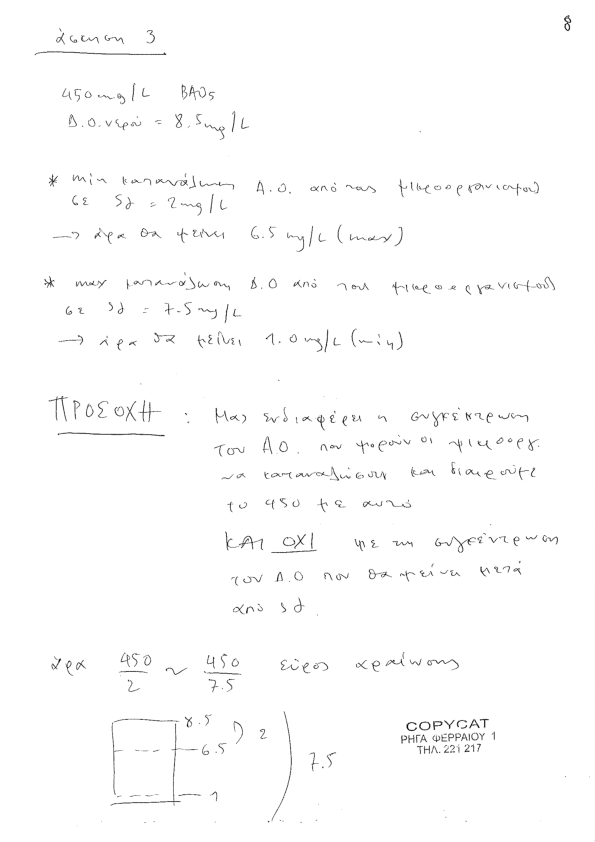 8
άσκηση 3
450mg/L BAO5
Δ.Ο.νερού = 8.5mg/L
* min κατανάλωση Δ.Ο. από τους μικροοργανισμού
σε 5d = 2mg/L
→ άρα θα μείνει 6.5 mg/L (max)
* max κατανάλωση Δ.Ο από τους μικροοργανισμούς
σε 5d = 7.5mg/L
→ άρα θα μείνει 1.0mg/L (min)
ΠΡΟΣΟΧΗ : Μας ενδιαφέρει η συγκέντρωση
του Δ.Ο. που μπορούν οι μικροοργ.
να καταναλώσουν και διαιρούμε
το 450 με αυτό
ΚΑΙ ΟΧΙ με τη συγκέντρωση
του Δ.Ο που θα μείνει μετά
από 5d.
άρα 450/2 ~ 450/7.5 εύρος αραίωσης
8.5
6.5 2
7.5
1
COPYCAT
ΡΗΓΑ ΦΕΡΡΑΙΟΥ 1
ΤΗΛ. 221 217